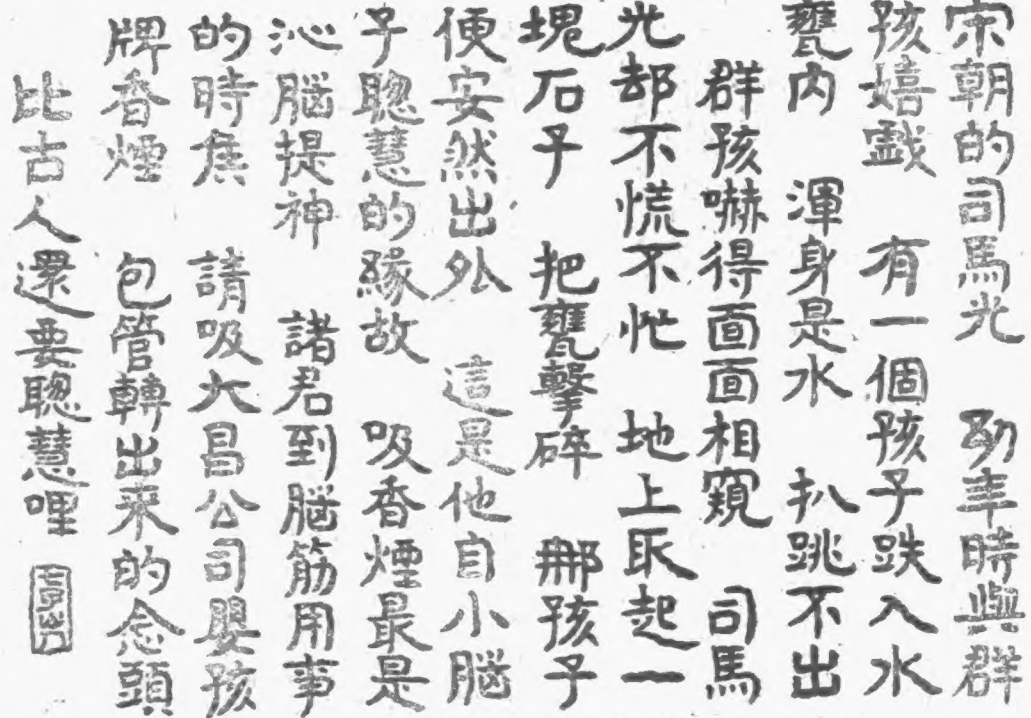 宋朝的司馬光　幼年時與群
孩嬉戲　有一個孩子跌入水
甕內　渾身是水　扒跳不出
群孩嚇得面面相窺　司馬
光却不慌不忙　地上取起一
塊石子　把甕擊碎　那孩子
便安然出外　這是他自小腦
子聰慧的緣故　吸香煙最是
沁腦提神　諸君到腦筋用事
的時候　請吸大昌公司嬰孩
牌香煙　包管轉出來的念頭
比古人還要聰慧哩